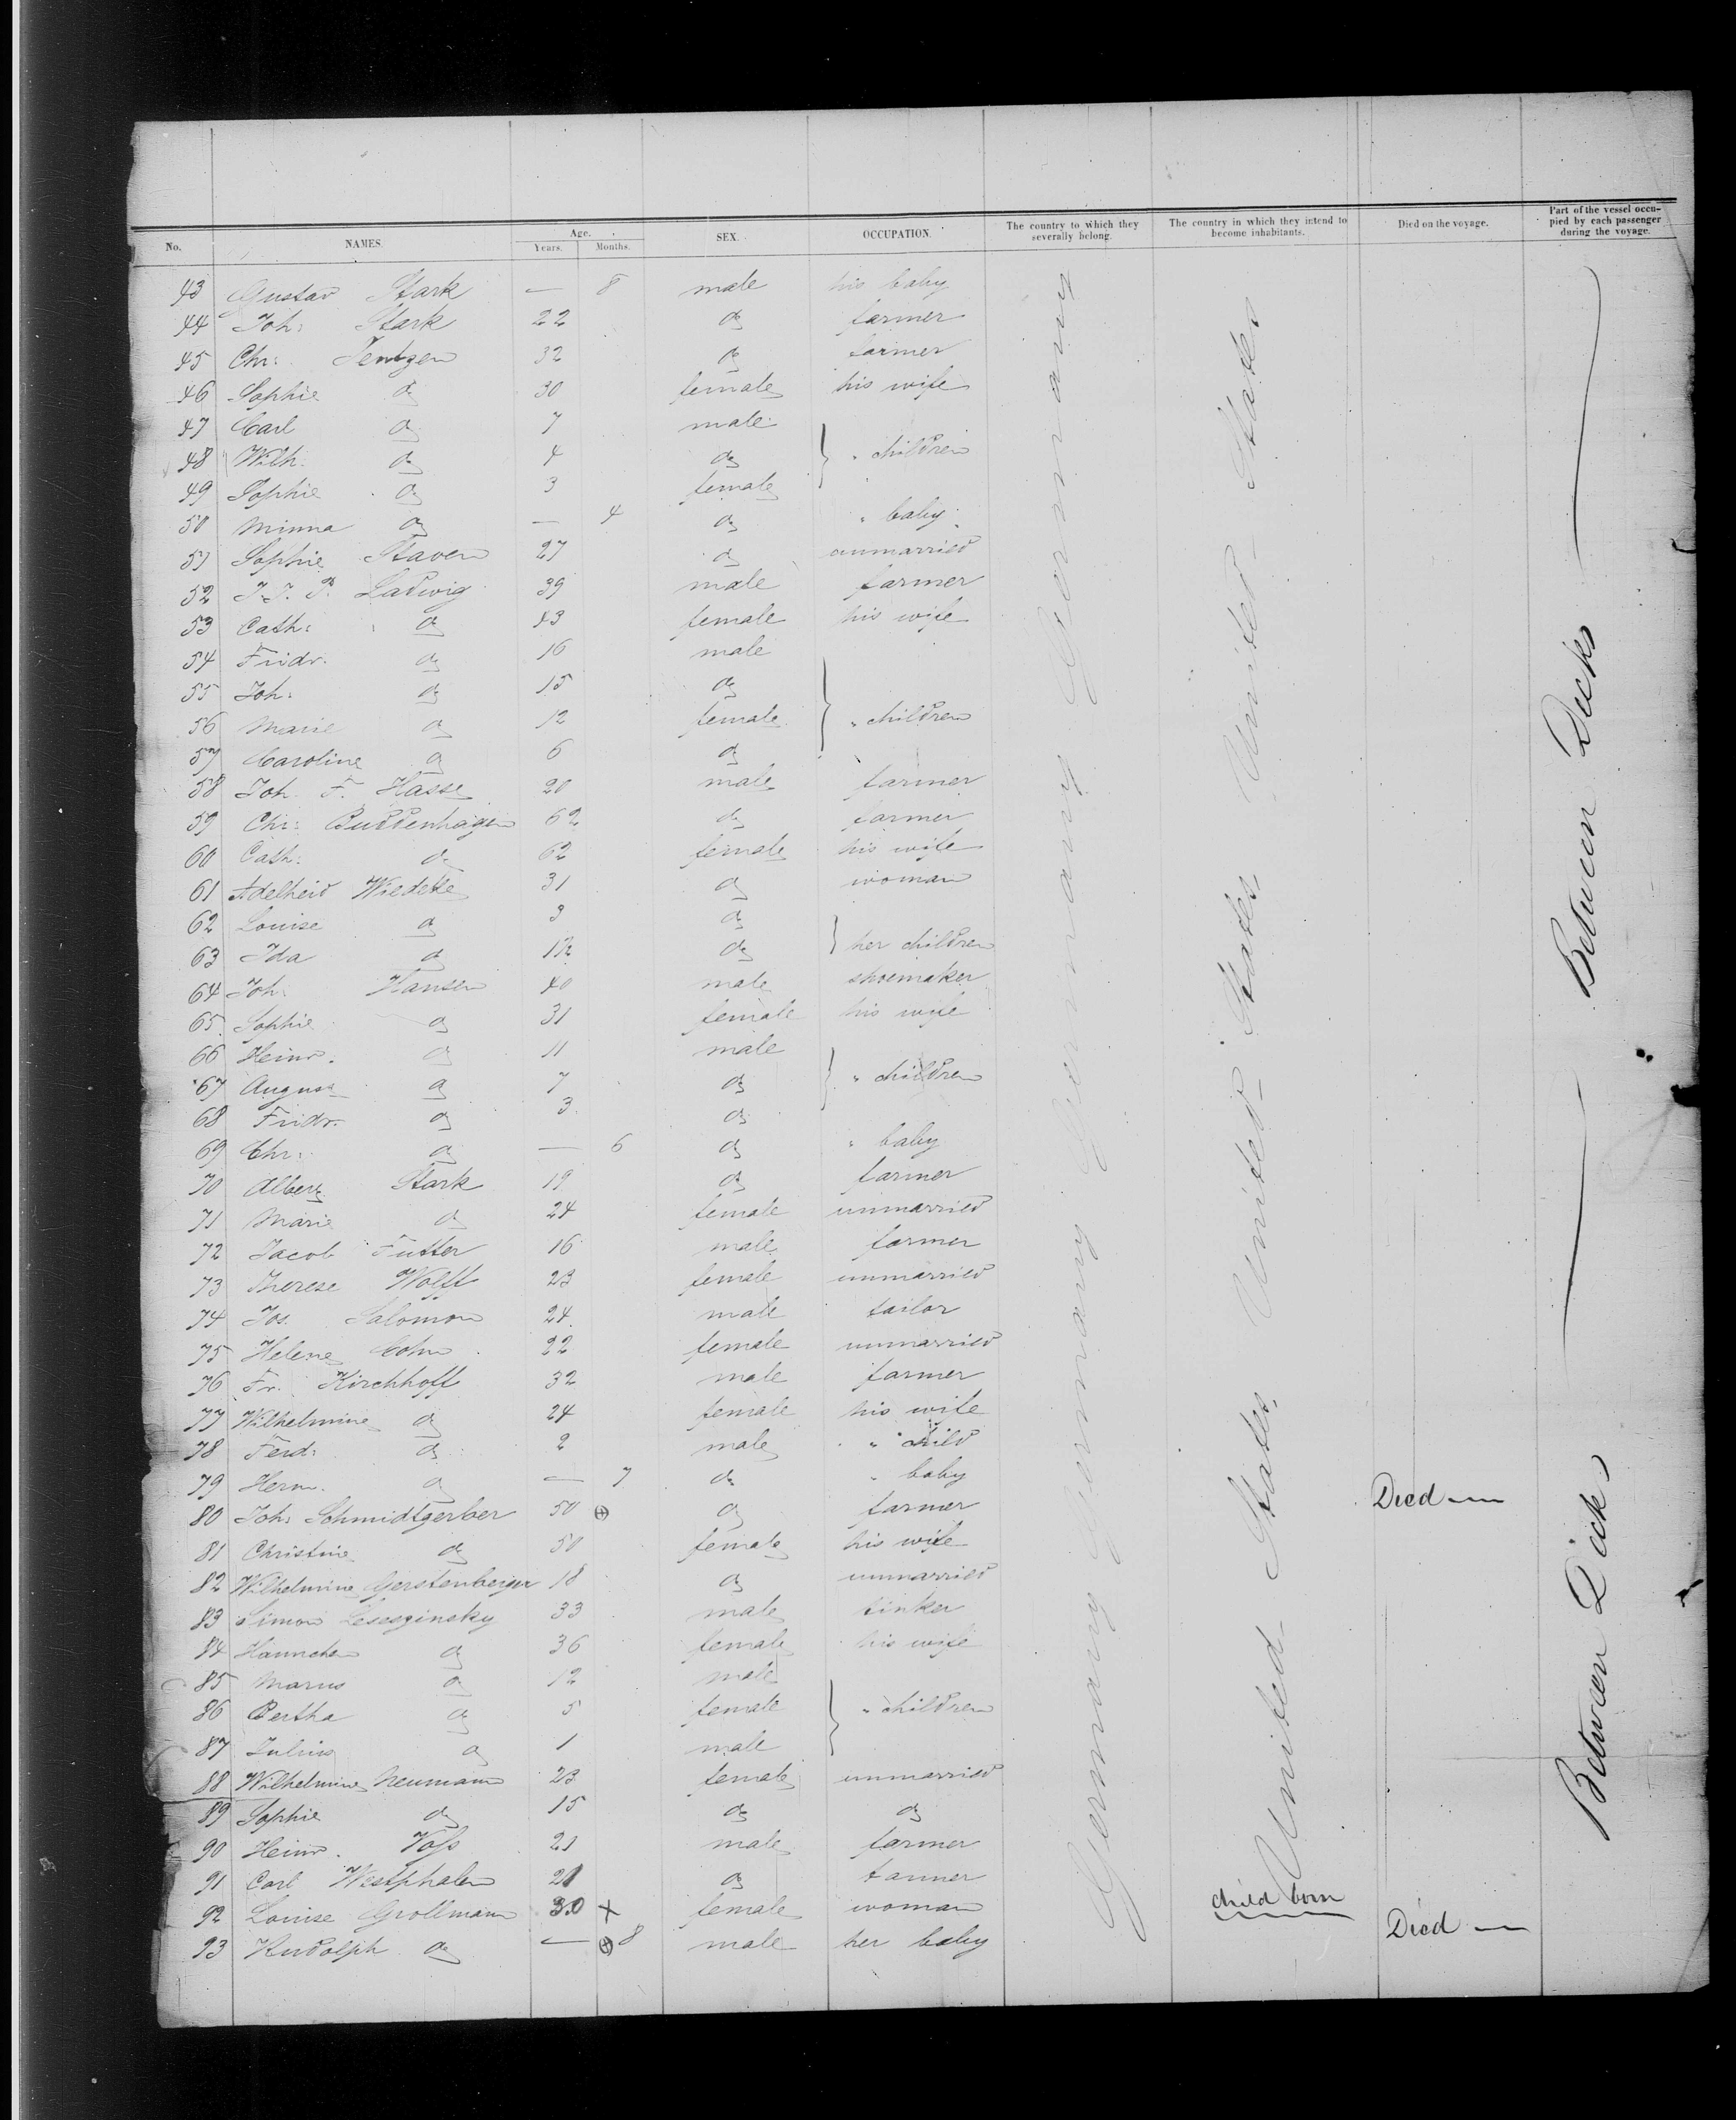 No. NAMES. Age. Years. Months. SEX. OCCUPATION. The country to which they severally belong. The country in which they intend to become inhabitants. Died on the voyage. Part of the vessel occupied by each passenger during the voyage.
43 Gustav Stark — 8 male his baby
44 Joh: Stark 22 do farmer
45 Chr: Jentzen 32 do farmer
46 Sophie do 30 female his wife
47 Carl do 7 male
48 Wilh. do 4 do } " children
49 Sophie do 3 female
50 Minna do — 4 do " baby
51 Sophie Staven 27 do unmarried
52 J. J. P. Ladwig 39 male farmer
53 Cath: do 43 female his wife
54 Fridr. do 16 male
55 Joh: do 15 do
56 Marie do 12 female } " children
57 Caroline do 6 do
58 Joh. F. Hasse 20 male farmer
59 Chr: Buddenhagen 62 do farmer
60 Cath: do 62 female his wife
61 Adelheid 31 do woman
62 Louise do 3 do
63 Ida do do } her children
64 Joh: Hansen 40 male shoemaker
65 Sophie do 31 female his wife
66 Heinr. do 11 male
67 August do 7 do } " children
68 Fridr. do 3 do
69 Chr: do — 6 do " baby
70 Albert Stark 19 do farmer
71 Marie do 24 female unmarried
72 Jacob Futter 16 male farmer
73 Therese Wolff 23 female unmarried
74 Jos. Salomon 24 male tailor
75 Helene Cohn 22 female unmarried
76 Fr. Kirchhoff 32 male farmer
77 Wilhelmine do 24 female his wife
78 Ferd: do 2 male " child
79 Herm. do — 7 do " baby
80 Joh: Schmidtgerber 50 ⊕ do farmer Died —
81 Christine do 50 female his wife
82 Wilhelmine Gerstenberger 18 do unmarried
83 Simon Leseszinsky 33 male tinker
84 Hannchen do 36 female his wife
85 Marus do 12 male
86 Bertha do 5 female } " children
87 Julius do 1 male
88 Wilhelmine Neumann 23 female unmarried
89 Sophie do 15 do do
90 Heinr. Voss 21 male farmer
91 Carl Westphalen 21 do tanner
92 Louise Grollmann 30 × female woman child born
93 Rudolph do — ⊕ 8 male her baby Died —
Germany Germany Germany Germany Germany
United States United States United States United States
Between Decks
Between Decks